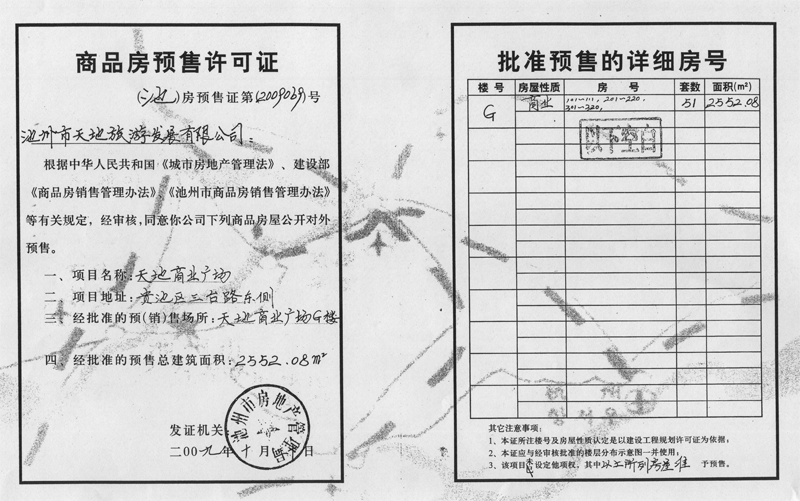 商品房预售许可证
(池)房预售证第(2009039)号
池州市天地旅游发展有限公司:
根据中华人民共和国《城市房地产管理法》、建设部
《商品房销售管理办法》、《池州市商品房销售管理办法》
等有关规定,经审核,同意你公司下列商品房屋公开对外
预售。
一、项目名称:天地商业广场
二、项目地址:贵池区三台路东侧
三、经批准的预(销)售场所:天地商业广场G楼
四、经批准的预售总建筑面积:2552.08m²
发证机关:
池州市房地产管理局
二00九年十月 日
批准预售的详细房号
楼号 房屋性质 房号 套数 面积(m²)
G 商业 101-111, 201-220, 301-320, 51 2552.08
以下空白
其它注意事项:
1、本证所注楼号及房屋性质认定是以建设工程规划许可证为依据;
2、本证应与经审核批准的楼层分布示意图一并使用;
3、该项目未设定他项权,其中以上所列房屋准予预售。